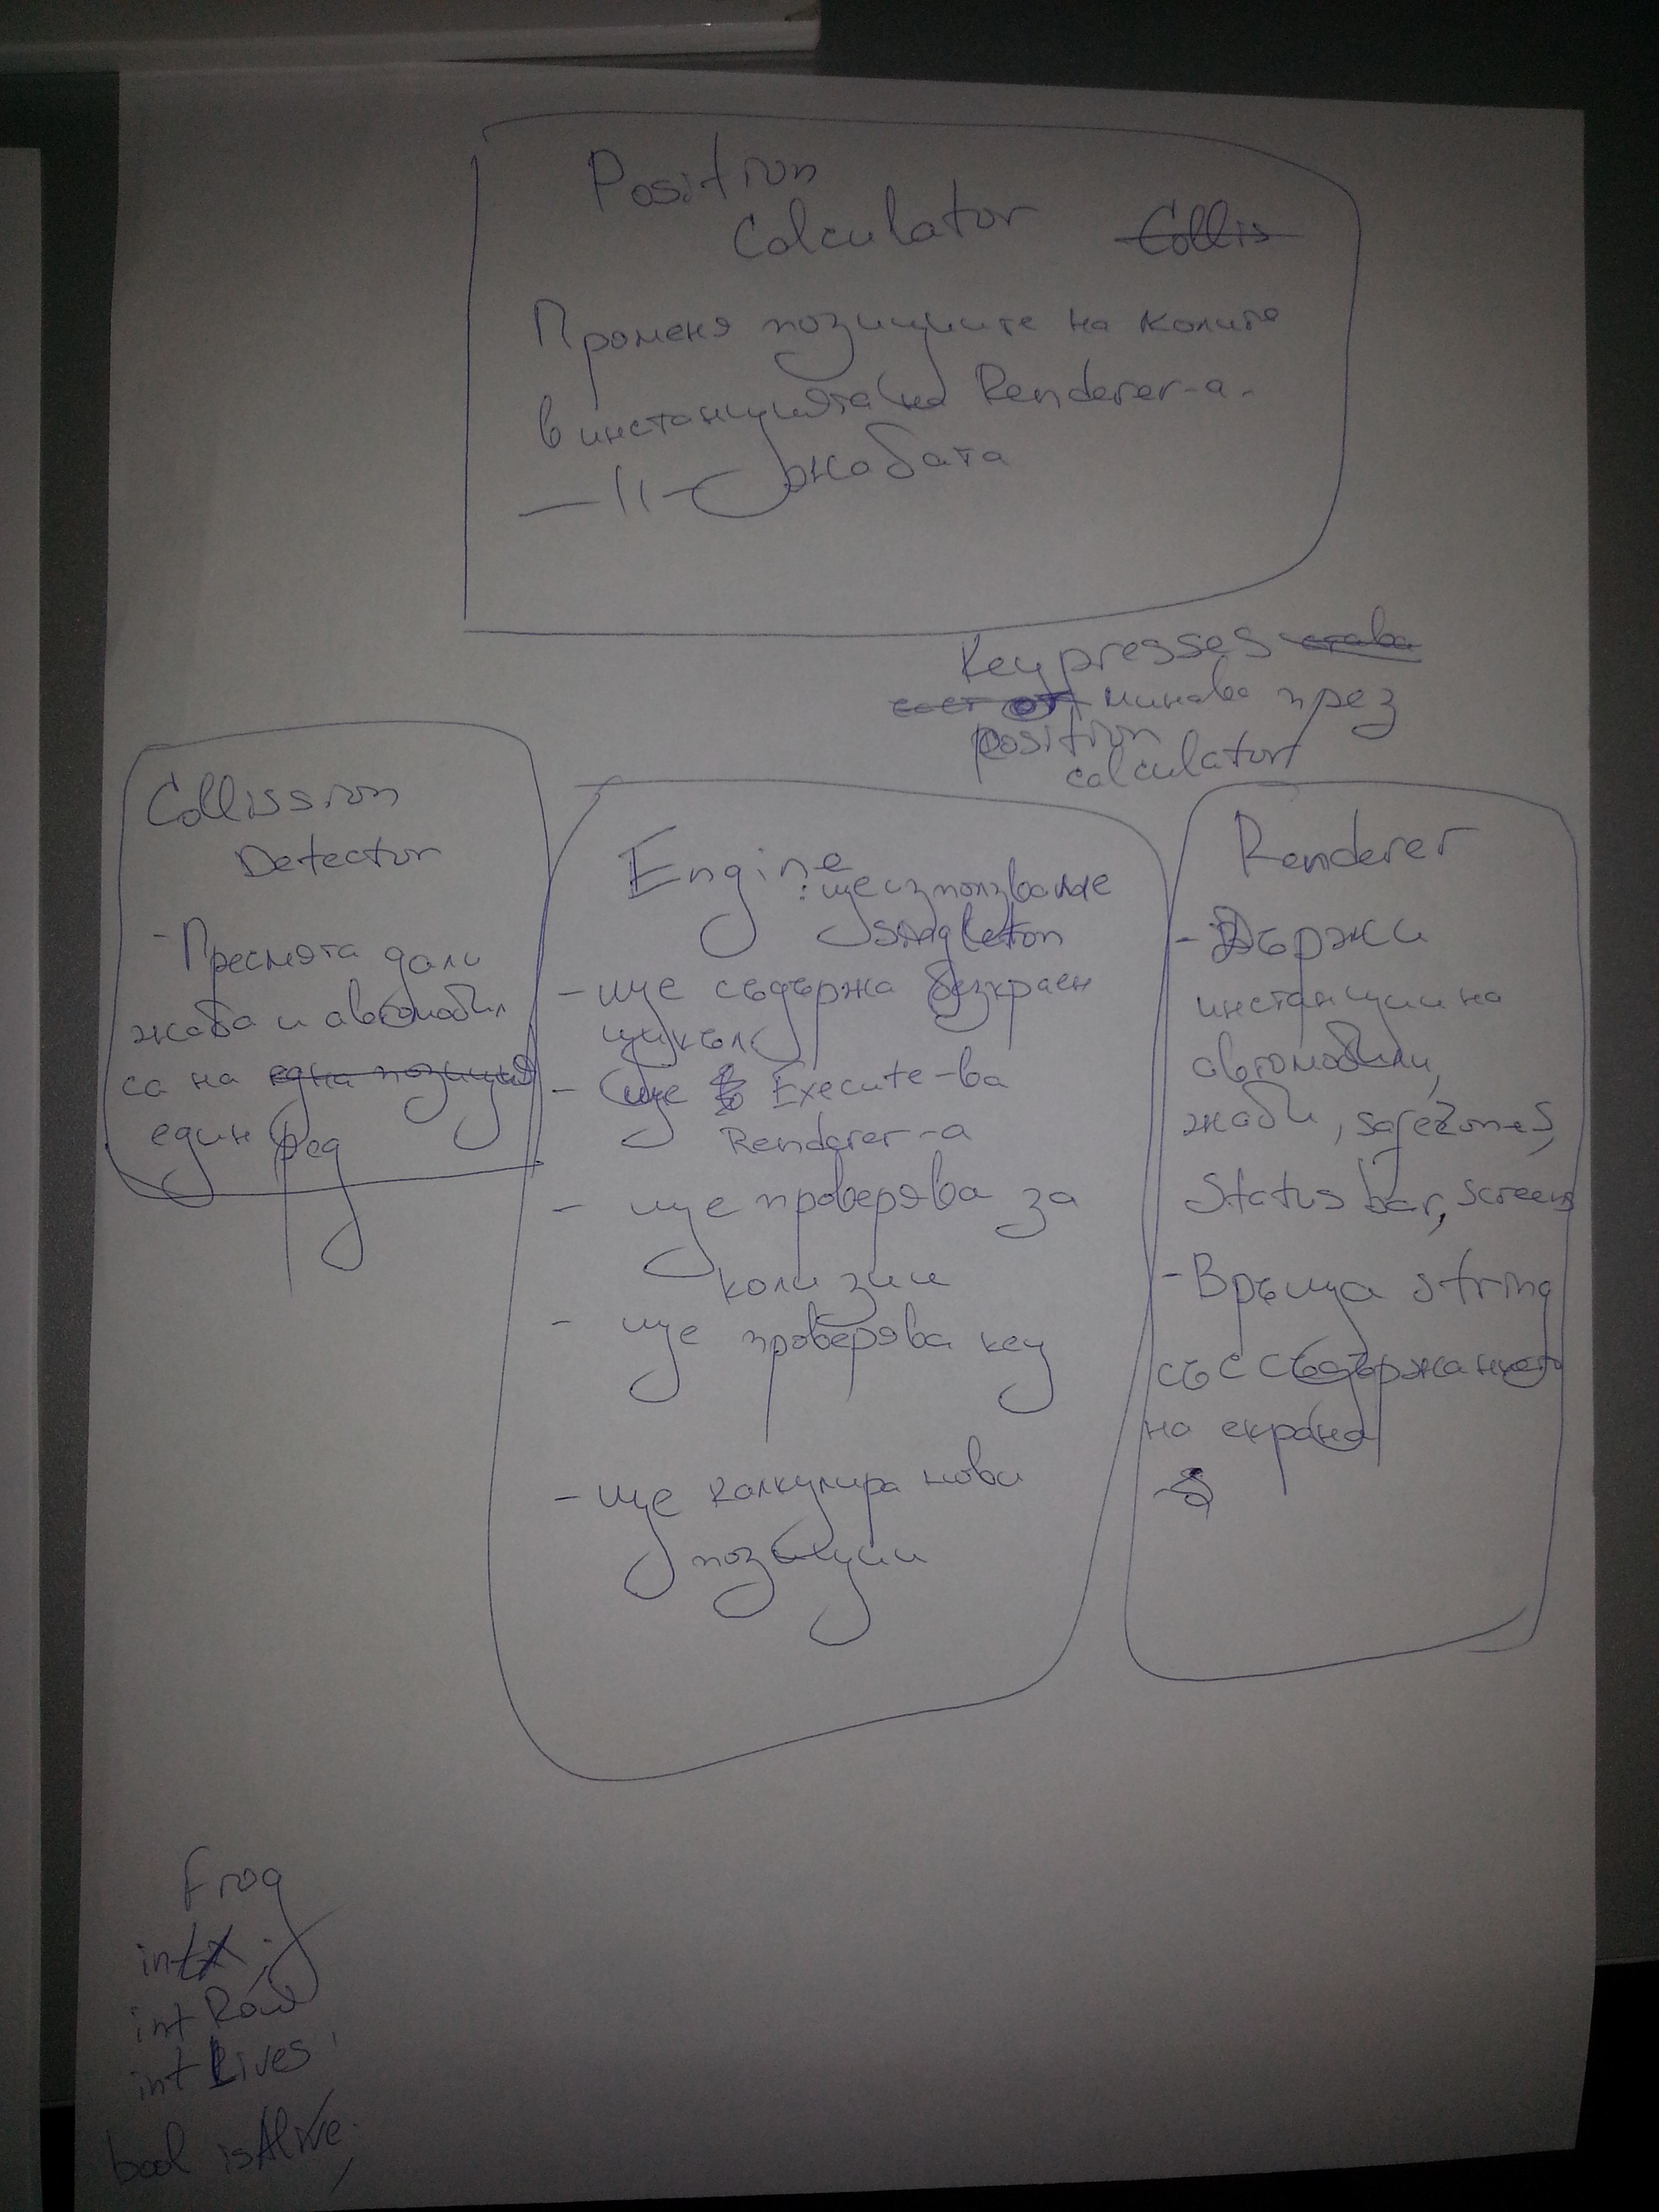 Position
Calculator Collis
Променя позициите на колите
в инстанцията на Renderer-а.
—||— жабата
Key presses става
минава през
position
calculator
Collission
Detector
- Пресмята дали
жаба и автомобил
са на една позиция
един ред
Engine
: ще използваме
Singleton
- ще съдържа безкраен
цикъл
- ще Execute-ва
Renderer-а
- ще проверява за
колизии
- ще проверява key
- ще калкулира нови
позиции
Renderer
- Държи
инстанции на
автомобили,
жаби, safezones,
Status bar, screens
- Връща string
със съдържанието
на екрана
Frog
int X;
int Row
int Lives;
bool isAlive;